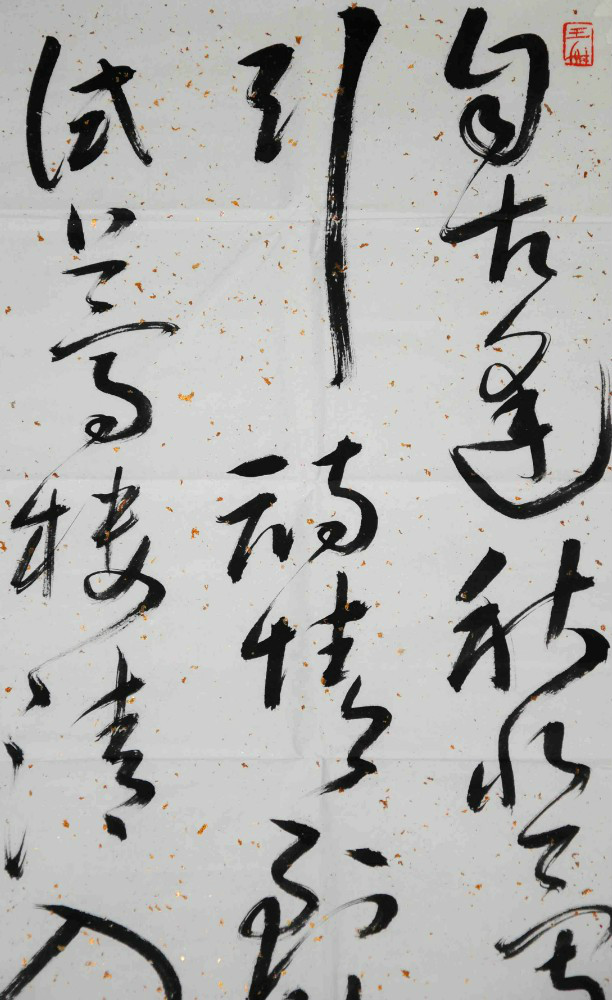 自古逢秋悲
引诗情到
试上高楼清入